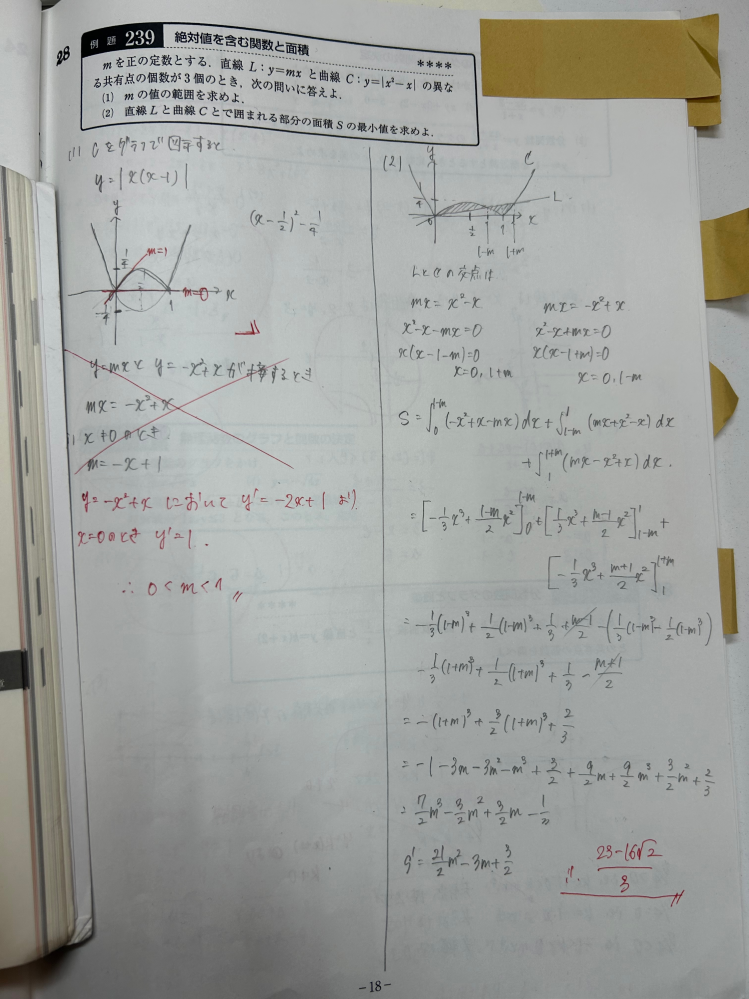 28
例題 239 絶対値を含む関数と面積 ****
mを正の定数とする．直線L：y=mxと曲線C：y=|x²−x| の異な
る共有点の個数が3個のとき，次の問いに答えよ．
(1) mの値の範囲を求めよ．
(2) 直線Lと曲線Cとで囲まれる部分の面積Sの最小値を求めよ．
(1) Cをグラフで図示すると．
y=|x(x-1)|
(x-1/2)²-1/4
y
1/4
m=1
m=0
x
1
-1/4
y=mxと y=-x²+xが接するとき
mx=-x²+x
x≠0のとき．
m=-x+1
y=-x²+x において y'=-2x+1 より
x=0のとき y'=1．
∴ 0<m<1
(2)
y
C
L
1/4
0
1/2
1
2
x
1-m
1+m
LとCの交点は
mx=x²-x
x²-x-mx=0
x(x-1-m)=0
x=0, 1+m
mx=-x²+x
x²-x+mx=0
x(x-1+m)=0
x=0, 1-m
S=∫₀^{1-m}(-x²+x-mx)dx+∫_{1-m}^{1}(mx+x²-x)dx
+∫₁^{1+m}(mx-x²+x)dx．
=[-1/3x³+(1-m)/2x²]₀^{1-m}+[1/3x³+(m-1)/2x²]_{1-m}^{1}+
[-1/3x³+(m+1)/2x²]₁^{1+m}
=-1/3(1-m)³+1/2(1-m)³+1/3+(m-1)/2-(1/3(1-m)³-1/2(1-m)³)
-1/3(1+m)³+1/2(1+m)³+1/3-(m+1)/2
=-(1+m)³+3/2(1+m)³+2/3
=-1-3m-3m²-m³+3/2+9/2m+9/2m³+3/2m²+2/3
=7/2m³-3/2m²+3/2m-1/2
S'=21/2m²-3m+3/2
(23-16√2)/3
-18-